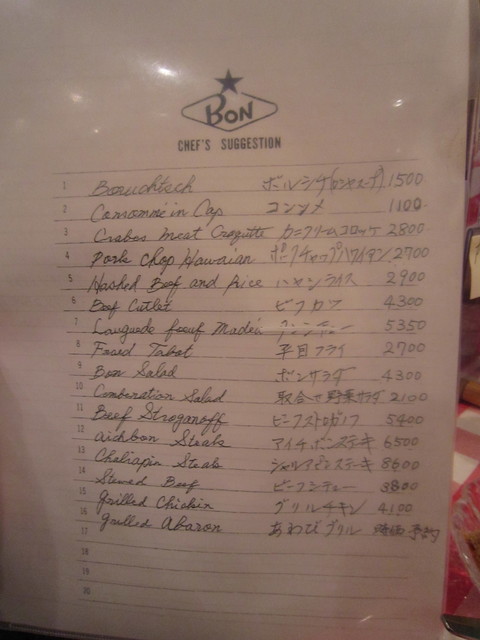 BON
CHEF'S SUGGESTION
1 Boruchtsch ボルシチ(ロシヤスープ) 1500
2 Consommé in Cap コンソメ 1100
3 Crabes meat Croquette カニクリームコロッケ 2800
4 Pork Chop Hawaiian ポークチャップハワイアン 2700
5 Hashed Beef and Rice ハヤシライス 2900
6 Beef Cutlet ビフカツ 4300
7 タンシチュー 5350
8 Fraed Tabot 平目フライ 2700
9 Bon Salad ボンサラダ 4300
10 Conbination Salad 取合せ野菜サラダ 2100
11 Beef Stroganoff ビーフストロガノフ 5400
12 aichbon Steak アイチボンステーキ 6500
13 Chaliapin Steak シャリアピンステーキ 8600
14 Stewed Beef ビーフシチュー 3800
15 grilled Chickin グリルチキン 4100
16 grilled Abaron あわびグリル 時価 予約
17
18
19
20